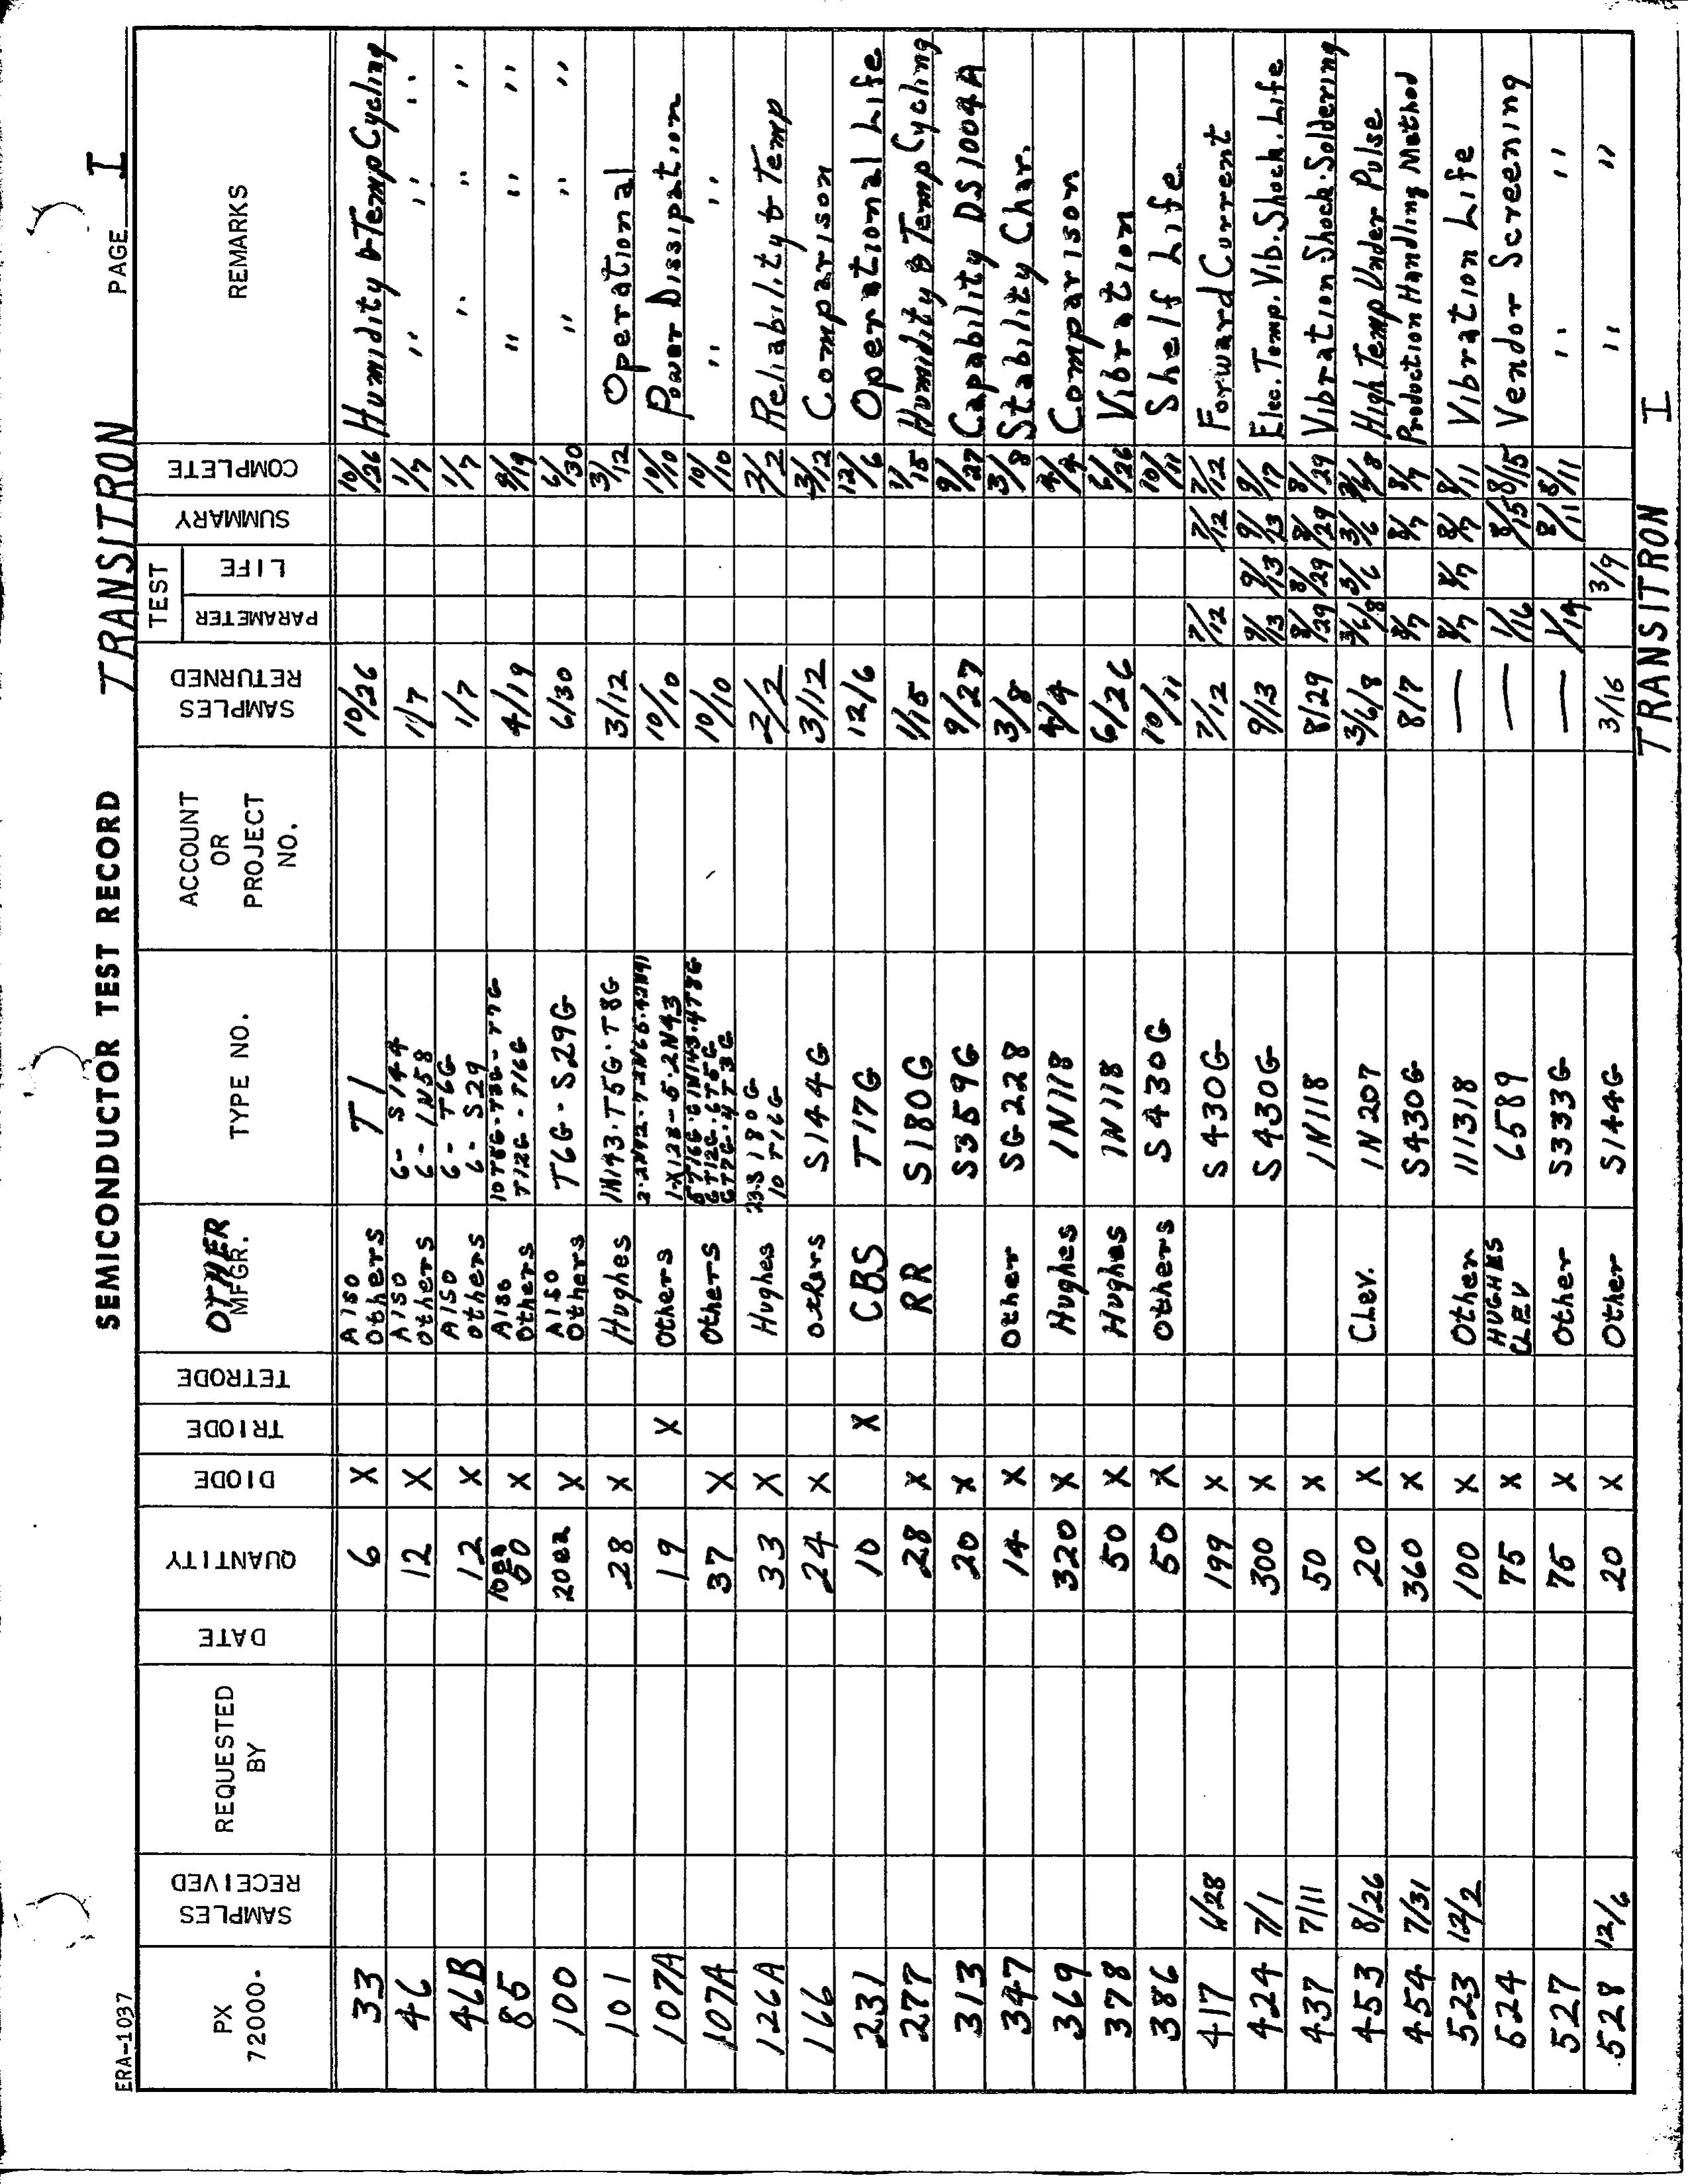 ERA-1037
SEMICONDUCTOR TEST RECORD TRANSITRON PAGE I
PX 72000- SAMPLES RECEIVED REQUESTED BY DATE QUANTITY DIODE TRIODE TETRODE OTHER MFGR. TYPE NO. ACCOUNT OR PROJECT NO. SAMPLES RETURNED TEST PARAMETER LIFE SUMMARY COMPLETE REMARKS
33 6 X Also Others T1 10/26 10/26 Humidity & Temp Cycling
46 12 X Also Others 6- S144 6- 1N58 1/7 1/7 " " "
46B 12 X Also Others 6- T6G 6- S29 1/7 1/7 " " "
85 10ea 50 X Also Others T12G - T16G 4/19 " " "
100 20ea X Also Others T6G - S29G 6/30 6/30 " " "
101 28 X Hughes 1N143·T5G·T8G 3/12 3/12 Operational
107A 19 X Others 10/10 10/10 Power Dissipation
107A 37 X Others 10/10 10/10 " "
126A 33 X Hughes 23-S180G 10 T16G 2/2 2/2 Reliability & Temp
166 24 X others S144G 3/12 3/12 Comparison
231 10 X CBS T17G 12/6 12/6 Operational Life
277 28 X RR S180G 1/15 1/15 Humidity & Temp Cycling
313 20 X S359G 9/27 9/27 Capability DS1004A
347 14 X Other SG228 3/8 3/8 Stability Char.
369 320 X Hughes 1N118 4/4 4/4 Comparison
378 50 X Hughes 1N118 6/26 6/26 Vibration
386 50 X Others S430G 10/11 10/11 Shelf Life
417 6/28 199 X S430G 7/12 7/12 7/12 7/12 Forward Current
424 7/1 300 X S430G 9/13 9/13 9/13 9/13 9/17 Elec. Temp. Vib. Shock. Life
437 7/11 50 X 1N118 8/29 8/29 8/29 8/29 8/29 Vibration Shock·Soldering
453 8/26 20 X Clev. 1N207 3/6/8 3/6/8 3/6 3/6 3/6/8 High Temp Under Pulse
454 7/31 360 X S430G 8/7 8/7 8/7 8/7 Production Handling Method
523 12/2 100 X Other 11318 — 8/7 8/7 8/7 8/11 Vibration Life
524 75 X HUGHES CLEV 6589 — 1/16 8/15 8/15 Vendor Screening
527 75 X Other S333G — 1/14 8/11 8/11 " "
528 12/6 20 X Other S144G 3/16 3/9 " "
TRANSITRON I